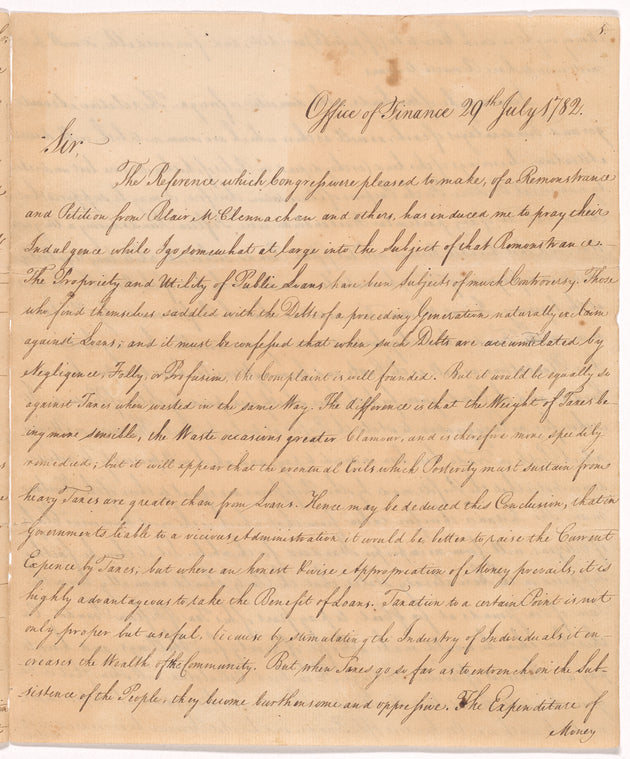 5.
Office of Finance 29th July 1782.
Sir,
The Reference which Congress were pleased to make, of a Remonstrance
and Petition from Blair McClennachan and others, has induced me to pray their
Indulgence while I go somewhat at large into the Subject of that Remonstrance.
The Propriety and Utility of Public Loans have been Subjects of much Controversy. Those
who find themselves saddled with the Debts of a preceding Generation naturally exclaim
against Loans; and it must be confessed that when such Debts are accumulated by
Negligence, Folly, or Profusion, the Complaint is well founded. But it would be equally so
against Taxes when wasted in the same Way. The difference is that the Weight of Taxes be-
ing more sensible, the Waste occasions greater Clamour, and is therefore more speedily
remedied; but it will appear that the eventual Evils which Posterity must sustain from
heavy Taxes are greater than from Loans. Hence may be deduced this Conclusion, that in
Governments liable to a vicious Administration it would be better to raise the Current
Expence by Taxes; but where an honest & wise Appropriation of Money prevails, it is
highly advantageous to take the Benefit of Loans. Taxation to a certain Point is not
only proper but useful, because by stimulating the Industry of Individuals it en-
creases the Wealth of the Community. But, when Taxes go so far as to entrench on the Sub-
sistence of the People, they become burthensome and oppressive. The Expenditure of
Money